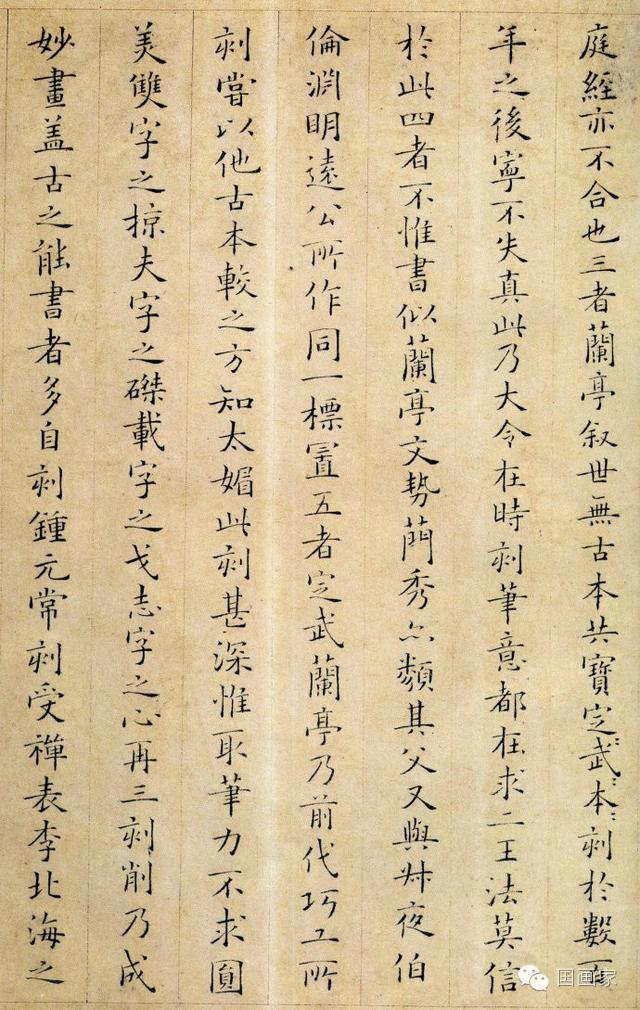 庭經亦不合也三者蘭亭叙世無古本共寶定武本刻於數百
年之後寧不失真此乃大令在時刻筆意都在求二王法莫信
於此四者不惟書似蘭亭文勢蕳秀亦類其父又與叔夜伯
倫淵明遠公所作同一標置五者定武蘭亭乃前代巧工所
刻嘗以他古本較之方知太媚此刻甚深惟取筆力不求圓
美雙字之掠夫字之磔載字之戈志字之心再三刻削乃成
妙畫盖古之能書者多自刻鍾元常刻受禪表李北海之
田画家